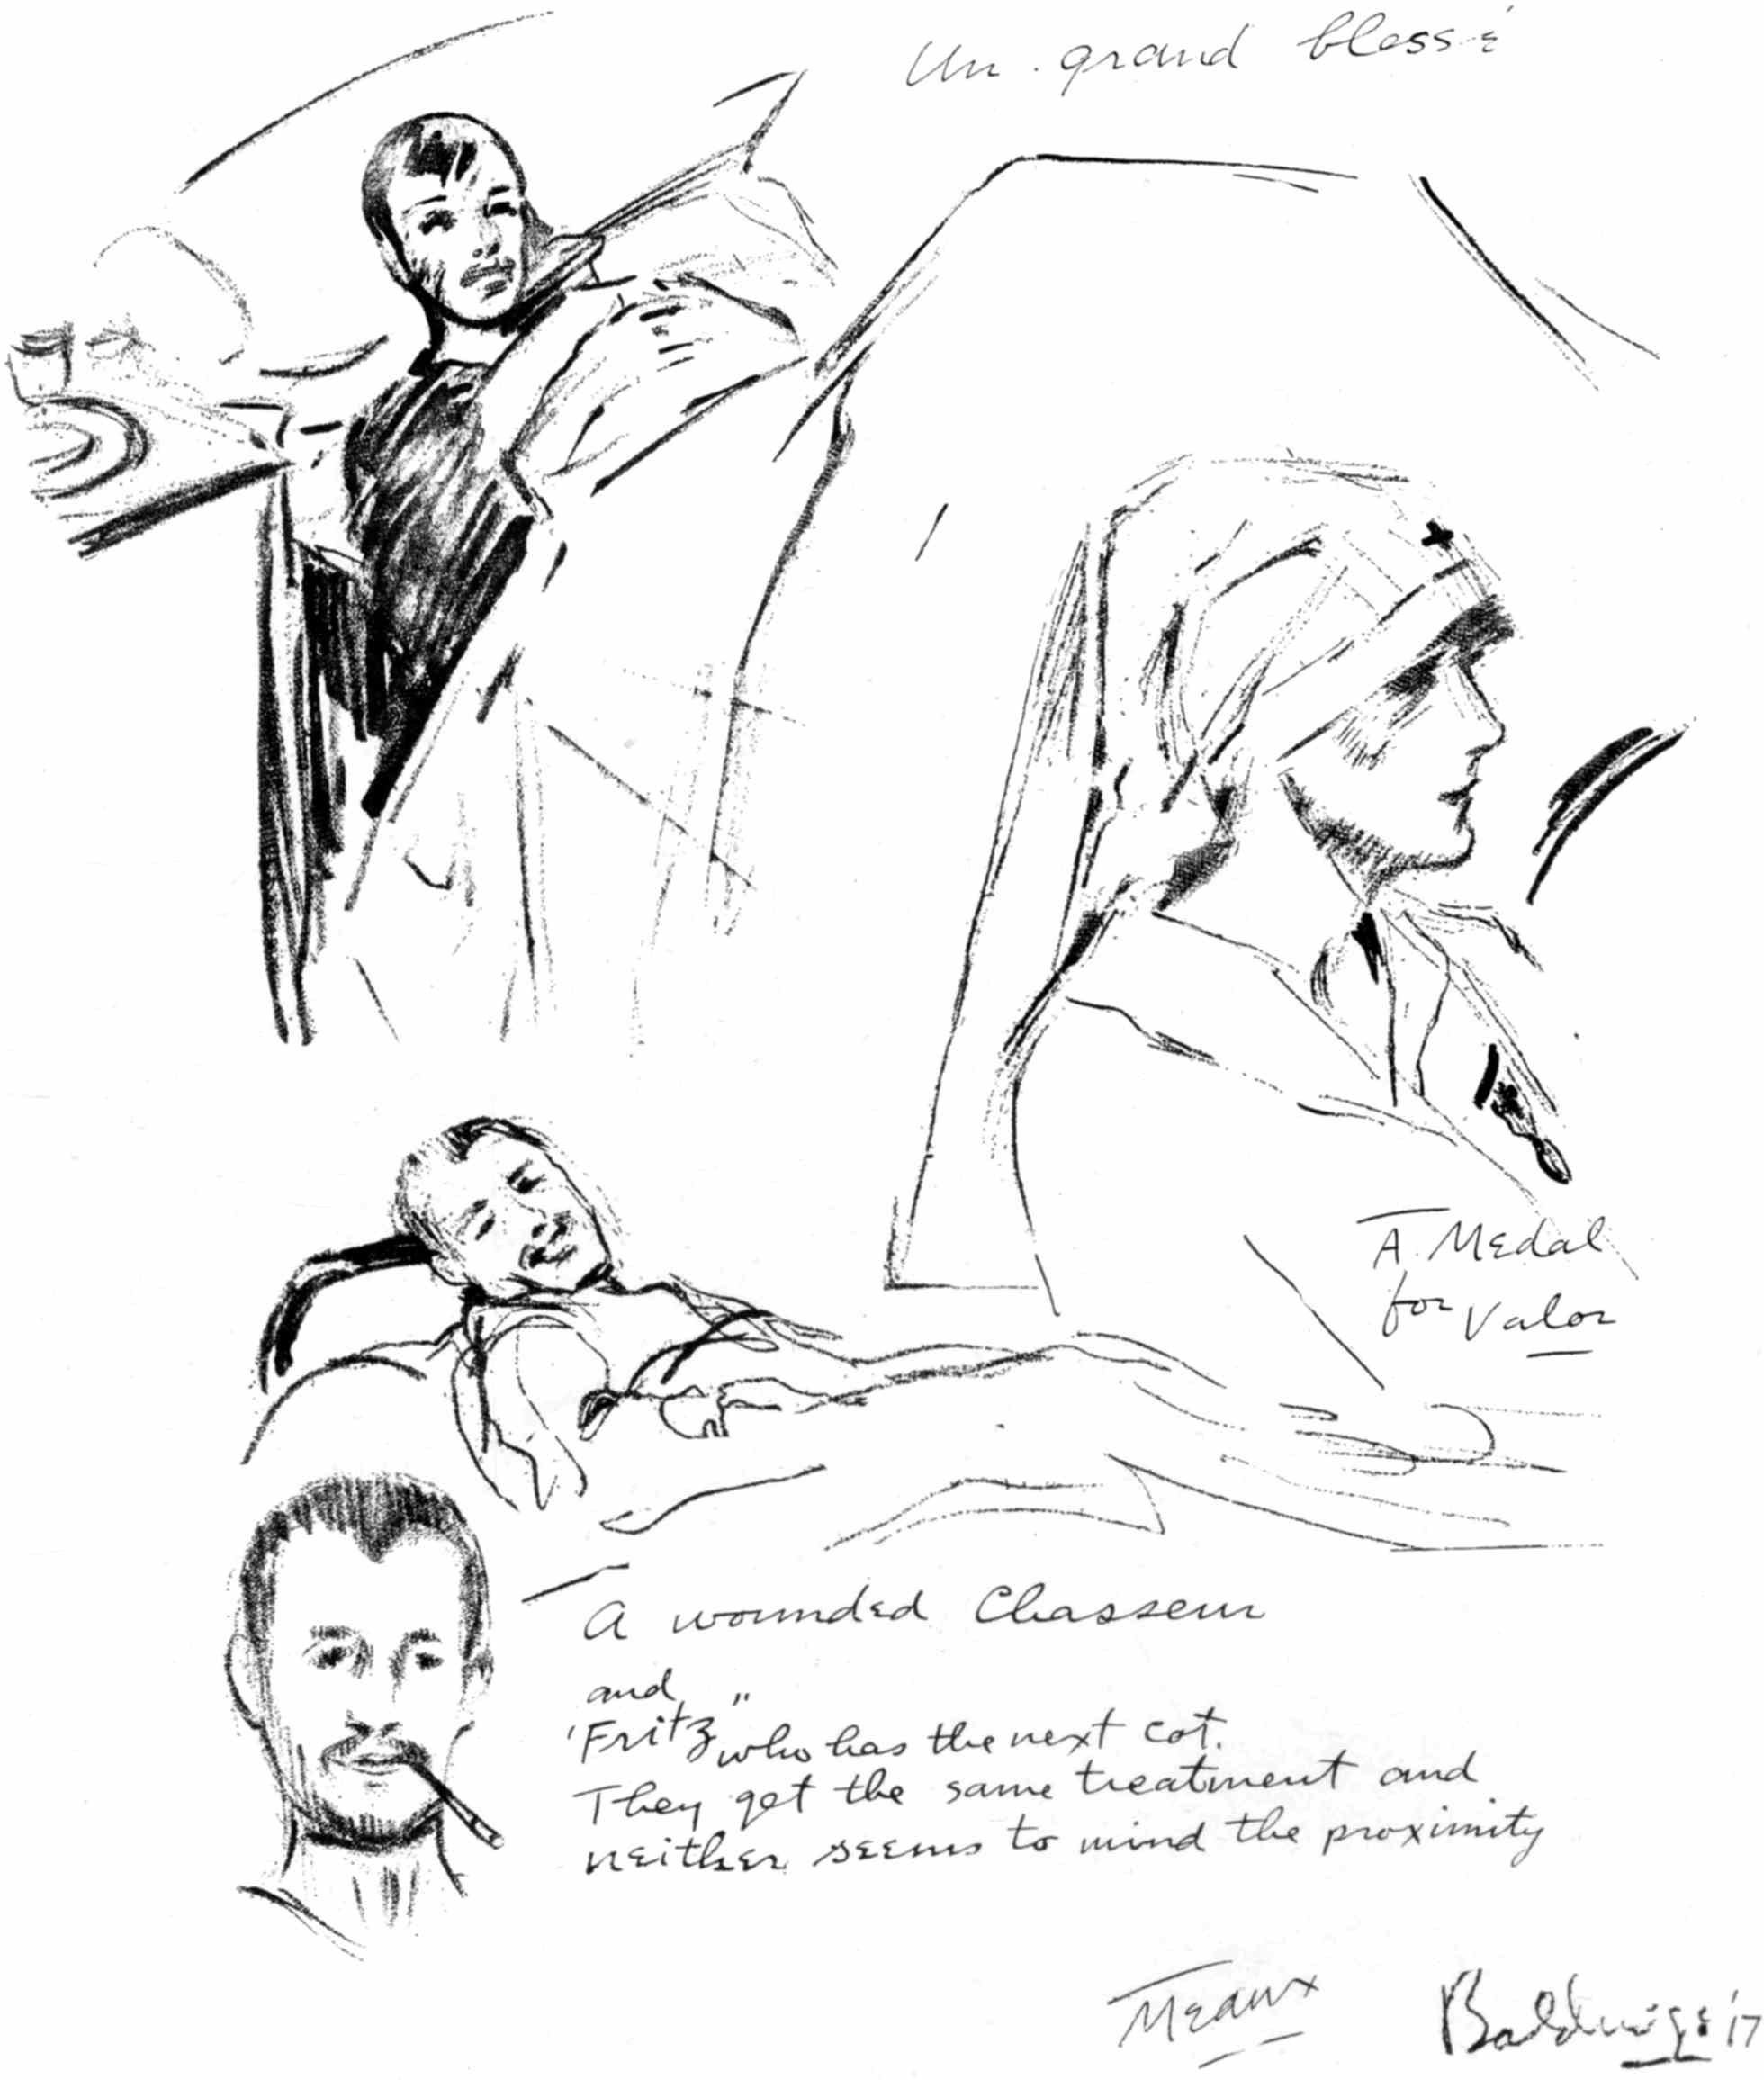 Un grand blessé
A Medal
for Valor
A wounded Chasseur
and
"Fritz" who has the next cot.
They get the same treatment and
neither seems to mind the proximity
Meaux
Baldridge '17